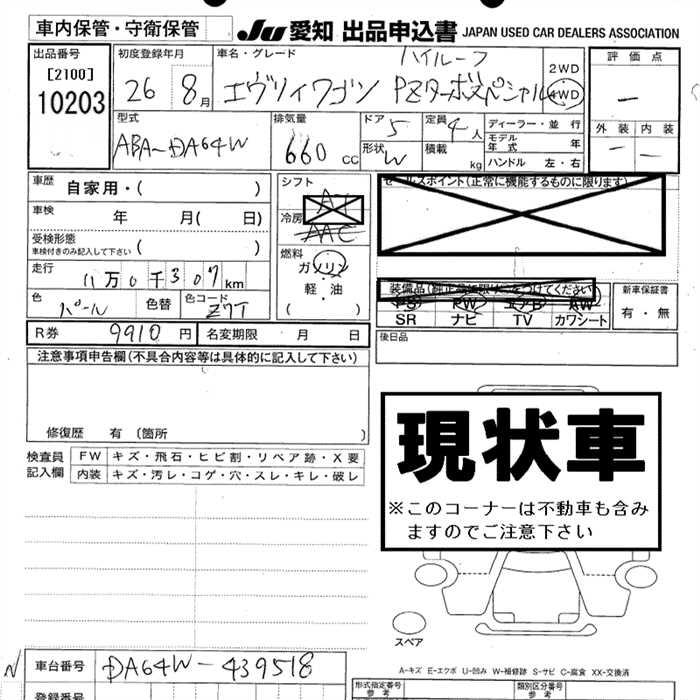 車内保管・守衛保管
JU 愛知 出品申込書 JAPAN USED CAR DEALERS ASSOCIATION
出品番号
[2100]
10203
初度登録年月
26 8月
車名・グレード
ハイルーフ
エヴリィワゴン PZターボスペシャル
2WD
4WD
評価点
—
外装 内装
— —
型式
ABA-DA64W
排気量
660 cc
ドア 5
形状 W
定員 4人
積載 kg
ディーラー・並行
モデル年式 年
ハンドル 左・右
車歴 自家用・( )
車検 年 月( 日)
受検形態
車検付きのみ記入して下さい ( )
走行 11万0千307km
色 パール 色替 色コード Z7T
R券 9910円 名変期限 月 日
シフト
冷房 AAC
燃料
ガソリン
軽・油
( )
セールスポイント(正常に機能するものに限ります)
SR ナビ TV カワシート
新車保証書
有・無
後日品
注意事項申告欄(不具合内容等は具体的に記入して下さい)
修復歴 有 〔箇所 〕
検査員記入欄
FW キズ・飛石・ヒビ割・リペア跡・X要
内装 キズ・汚レ・コゲ・穴・スレ・キレ・破レ
現状車
※このコーナーは不動車も含み
ますのでご注意下さい
スペア
A-キズ E-エクボ U-凹み W-補修跡 S-サビ C-腐食 XX-交換済
N 車台番号 DA64W-439518
登録番号
型式指定番号
参考
類別区分番号
参考